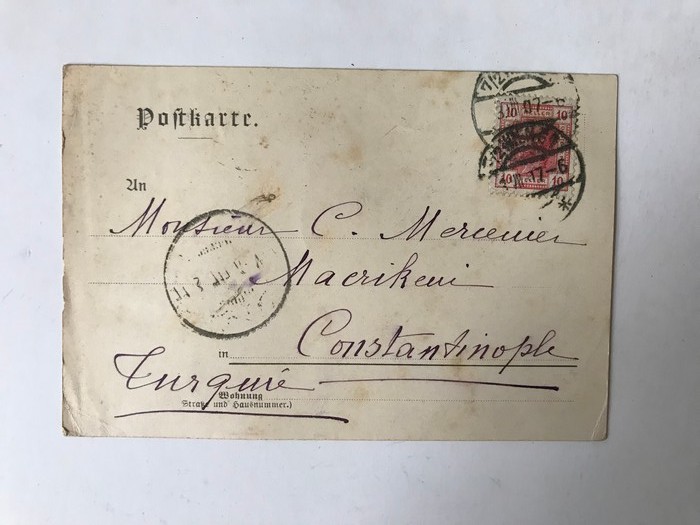 Postkarte.
10 10
10 10
An
Monsieur C. Mercenier
Macrikeui
in Constantinople
Turquie
Wohnung
(Straße und Hausnummer.)